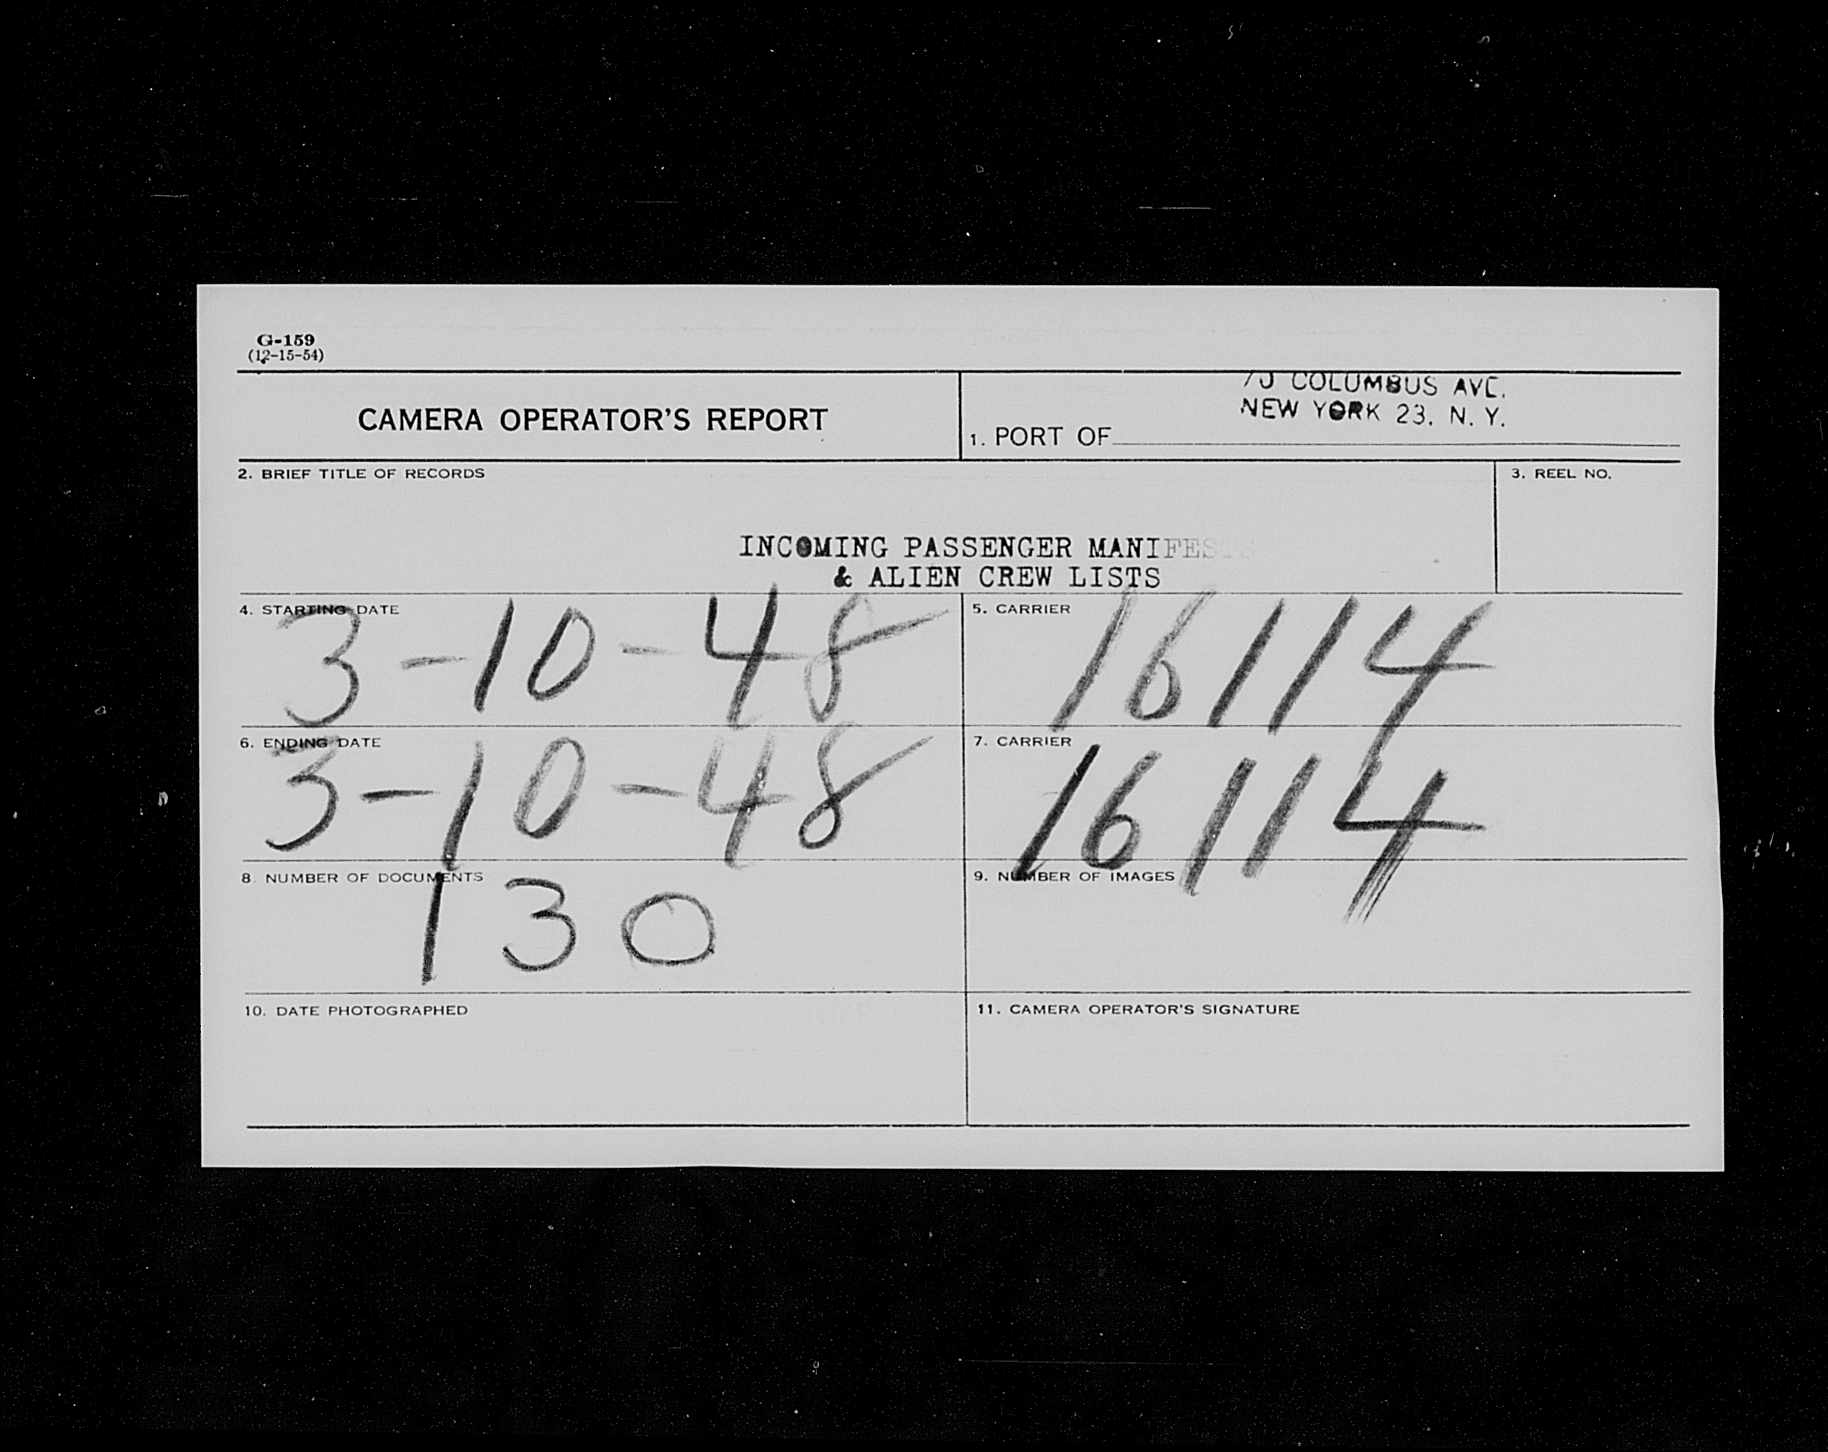 G-159
(12-15-54)
CAMERA OPERATOR'S REPORT
COLUMBUS AVE.
NEW YORK 23, N. Y.
1. PORT OF
2. BRIEF TITLE OF RECORDS
3. REEL NO.
INCOMING PASSENGER MANIFESTS
& ALIEN CREW LISTS
4. STARTING DATE
3-10-48
5. CARRIER
16114
6. ENDING DATE
3-10-48
7. CARRIER
16114
8. NUMBER OF DOCUMENTS
130
9. NUMBER OF IMAGES
10. DATE PHOTOGRAPHED
11. CAMERA OPERATOR'S SIGNATURE